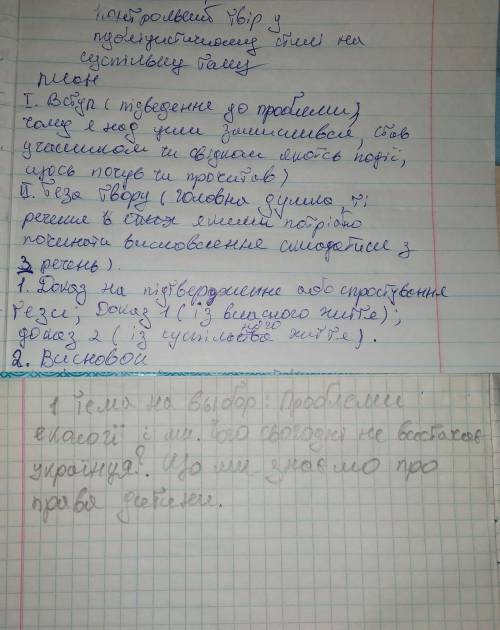 Контрольний твір у
публіцистичному стилі на
суспільну тему
План
I. Вступ (підведення до проблеми,
чому я над цим замислився, став
учасником чи свідком якоїсь події,
щось почув чи прочитав)
II. Теза твору (головна думка, ті
речення в яких якими потрібно
починати висловлення складатися з
3 речень).
1. Доказ на підтвердження або спростування
тези; Доказ 1 (із власного життя);
доказ 2 (із суспільства ного життя).
2. Висновок
1 тема на выбор: Проблеми
екології і ми. Чого сьогодні не вистачає
українцям?. Що ми знаємо про
права дитини.